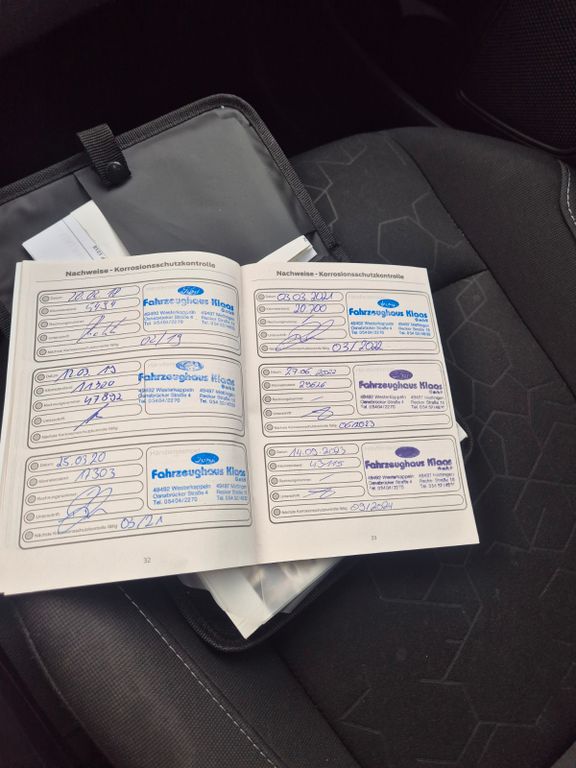 Nachweise - Korrosionsschutzkontrolle
Datum
Kilometerstand 5434
Rechnungsnummer
Unterschrift
Nächste Korrosionsschutzkontrolle fällig 02/19
Fahrzeughaus Klaas
GmbH
49492 Westerkappeln
Osnabrücker Straße 4
Tel. 05404/2270
Datum 12.03.19
Kilometerstand 11320
Rechnungsnummer 47832
Unterschrift
Fahrzeughaus Klaas
GmbH
49492 Westerkappeln
Osnabrücker Straße 4
Tel. 05404/2270
Datum 25.03.20
Kilometerstand 17303
Rechnungsnummer
Unterschrift
Nächste Korrosionsschutzkontrolle fällig 03/21
Fahrzeughaus Klaas
GmbH
49492 Westerkappeln
Osnabrücker Straße 4
Tel. 05404/2270
32
Nachweise - Korrosionsschutzkontrolle
Datum 03.03.2021
Kilometerstand 20700
Rechnungsnummer
Unterschrift
Nächste Korrosionsschutzkontrolle fällig 03/2022
Fahrzeughaus Klaas
GmbH
49492 Westerkappeln
Osnabrücker Straße 4
Tel. 05404/2270
49497 Mettingen
Datum 27.06.2022
Kilometerstand
Rechnungsnummer
Unterschrift
Nächste Korrosionsschutzkontrolle fällig 06/2023
Fahrzeughaus Klaas
GmbH
49492 Westerkappeln
Osnabrücker Straße 4
Tel. 05404/2270
49497 Mettingen
Datum 14.09.2023
Kilometerstand 43115
Rechnungsnummer
Unterschrift
Nächste Korrosionsschutzkontrolle fällig 09/2024
Fahrzeughaus Klaas
GmbH
49492 Westerkappeln
Osnabrücker Straße 4
Tel. 05404/2270
49497 Mettingen
33